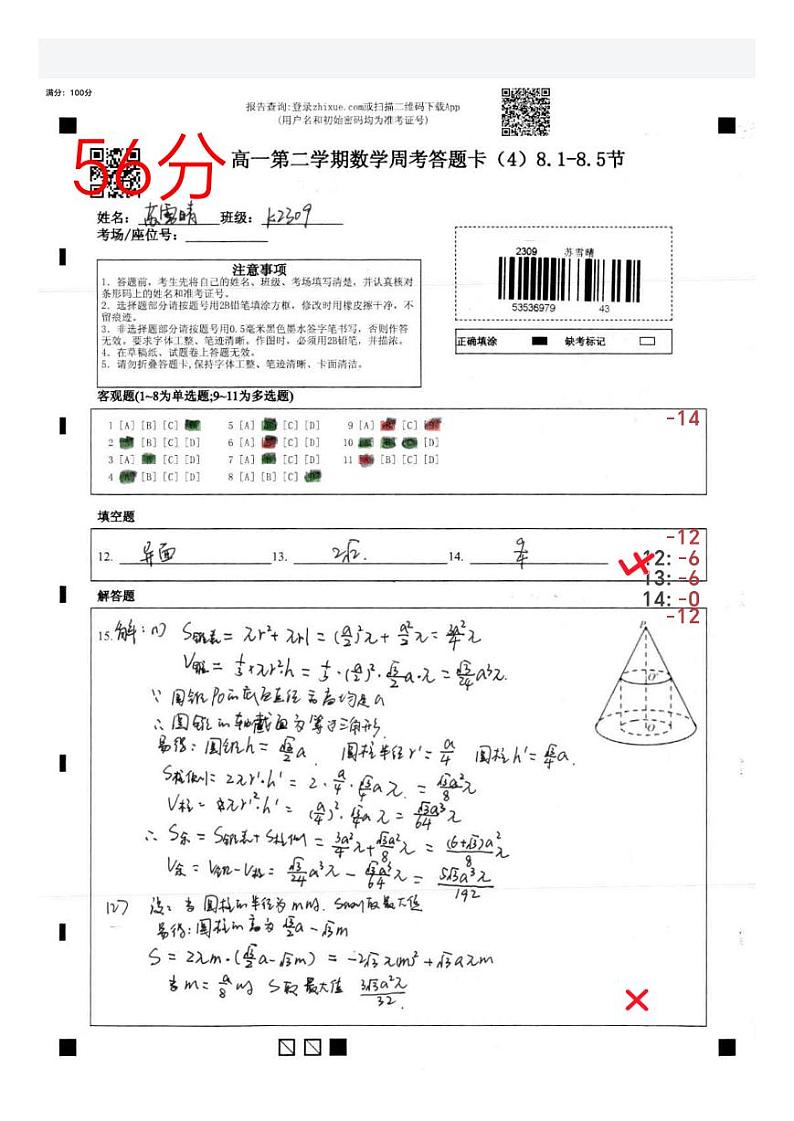 满分：100分
报告查询:登录zhixue.com或扫描二维码下载App
(用户名和初始密码均为准考证号)
56分
高一第二学期数学周考答题卡（4）8.1-8.5节
姓名：苏雪晴 班级：k2309
考场/座位号：
2309 苏雪晴
53536979 43
注意事项
1．答题前，考生先将自己的姓名、班级、考场填写清楚，并认真核对
条形码上的姓名和准考证号。
2．选择题部分请按题号用2B铅笔填涂方框，修改时用橡皮擦干净，不
留痕迹。
3．非选择题部分请按题号用0.5毫米黑色墨水签字笔书写，否则作答
无效。要求字体工整、笔迹清晰。作图时，必须用2B铅笔，并描浓。
4．在草稿纸、试题卷上答题无效。
5．请勿折叠答题卡,保持字体工整、笔迹清晰、卡面清洁。
正确填涂 缺考标记
客观题(1~8为单选题;9~11为多选题)
-14
1 [A] [B] [C] 5 [A] [C] [D] 9 [A] [C]
2 [B] [C] [D] 6 [A] [C] [D] 10 [D]
3 [A] [C] [D] 7 [A] [C] [D] 11 [B] [C] [D]
4 [B] [C] [D] 8 [A] [B] [C]
填空题
-12
12. 异面 13. 2√2. 14. 9/4
12: -6
13: -6
14: -0
解答题
-12
15. 解：(1) S锥表 = πr²+πrl = (a/2)²π + a²/2π = 3a²/4π
V锥 = 1/3πr²·h = 1/3·(a/2)²·√3/2a·π = √3/24a³π.
∵ 圆锥PO的底面直径和高均是a
∴ 圆锥的轴截面为等边三角形.
易得：圆锥h = √3/2a. 圆柱半径r' = a/4 圆柱h' = √3/4a.
S柱侧 = 2πr'·h' = 2·a/4·√3/4aπ = √3a²/8π
V柱 = πr'²·h' = (a/4)²·√3/4aπ = √3a³/64π
∴ S余 = S锥表+S柱侧 = 3a²/4π + √3a²/8π = (6+√3)a²/8π
V余 = V锥-V柱 = √3/24a³π - √3a³/64π = 5√3a³π/192
(2) 设：当圆柱的半径为m时，S侧取最大值
易得：圆柱的高为√3/2a-√3m
S = 2πm·(√3/2a-√3m) = -2√3πm²+√3aπm
当m = a/8时 S取最大值 3√3a²π/32.
P
O'
O